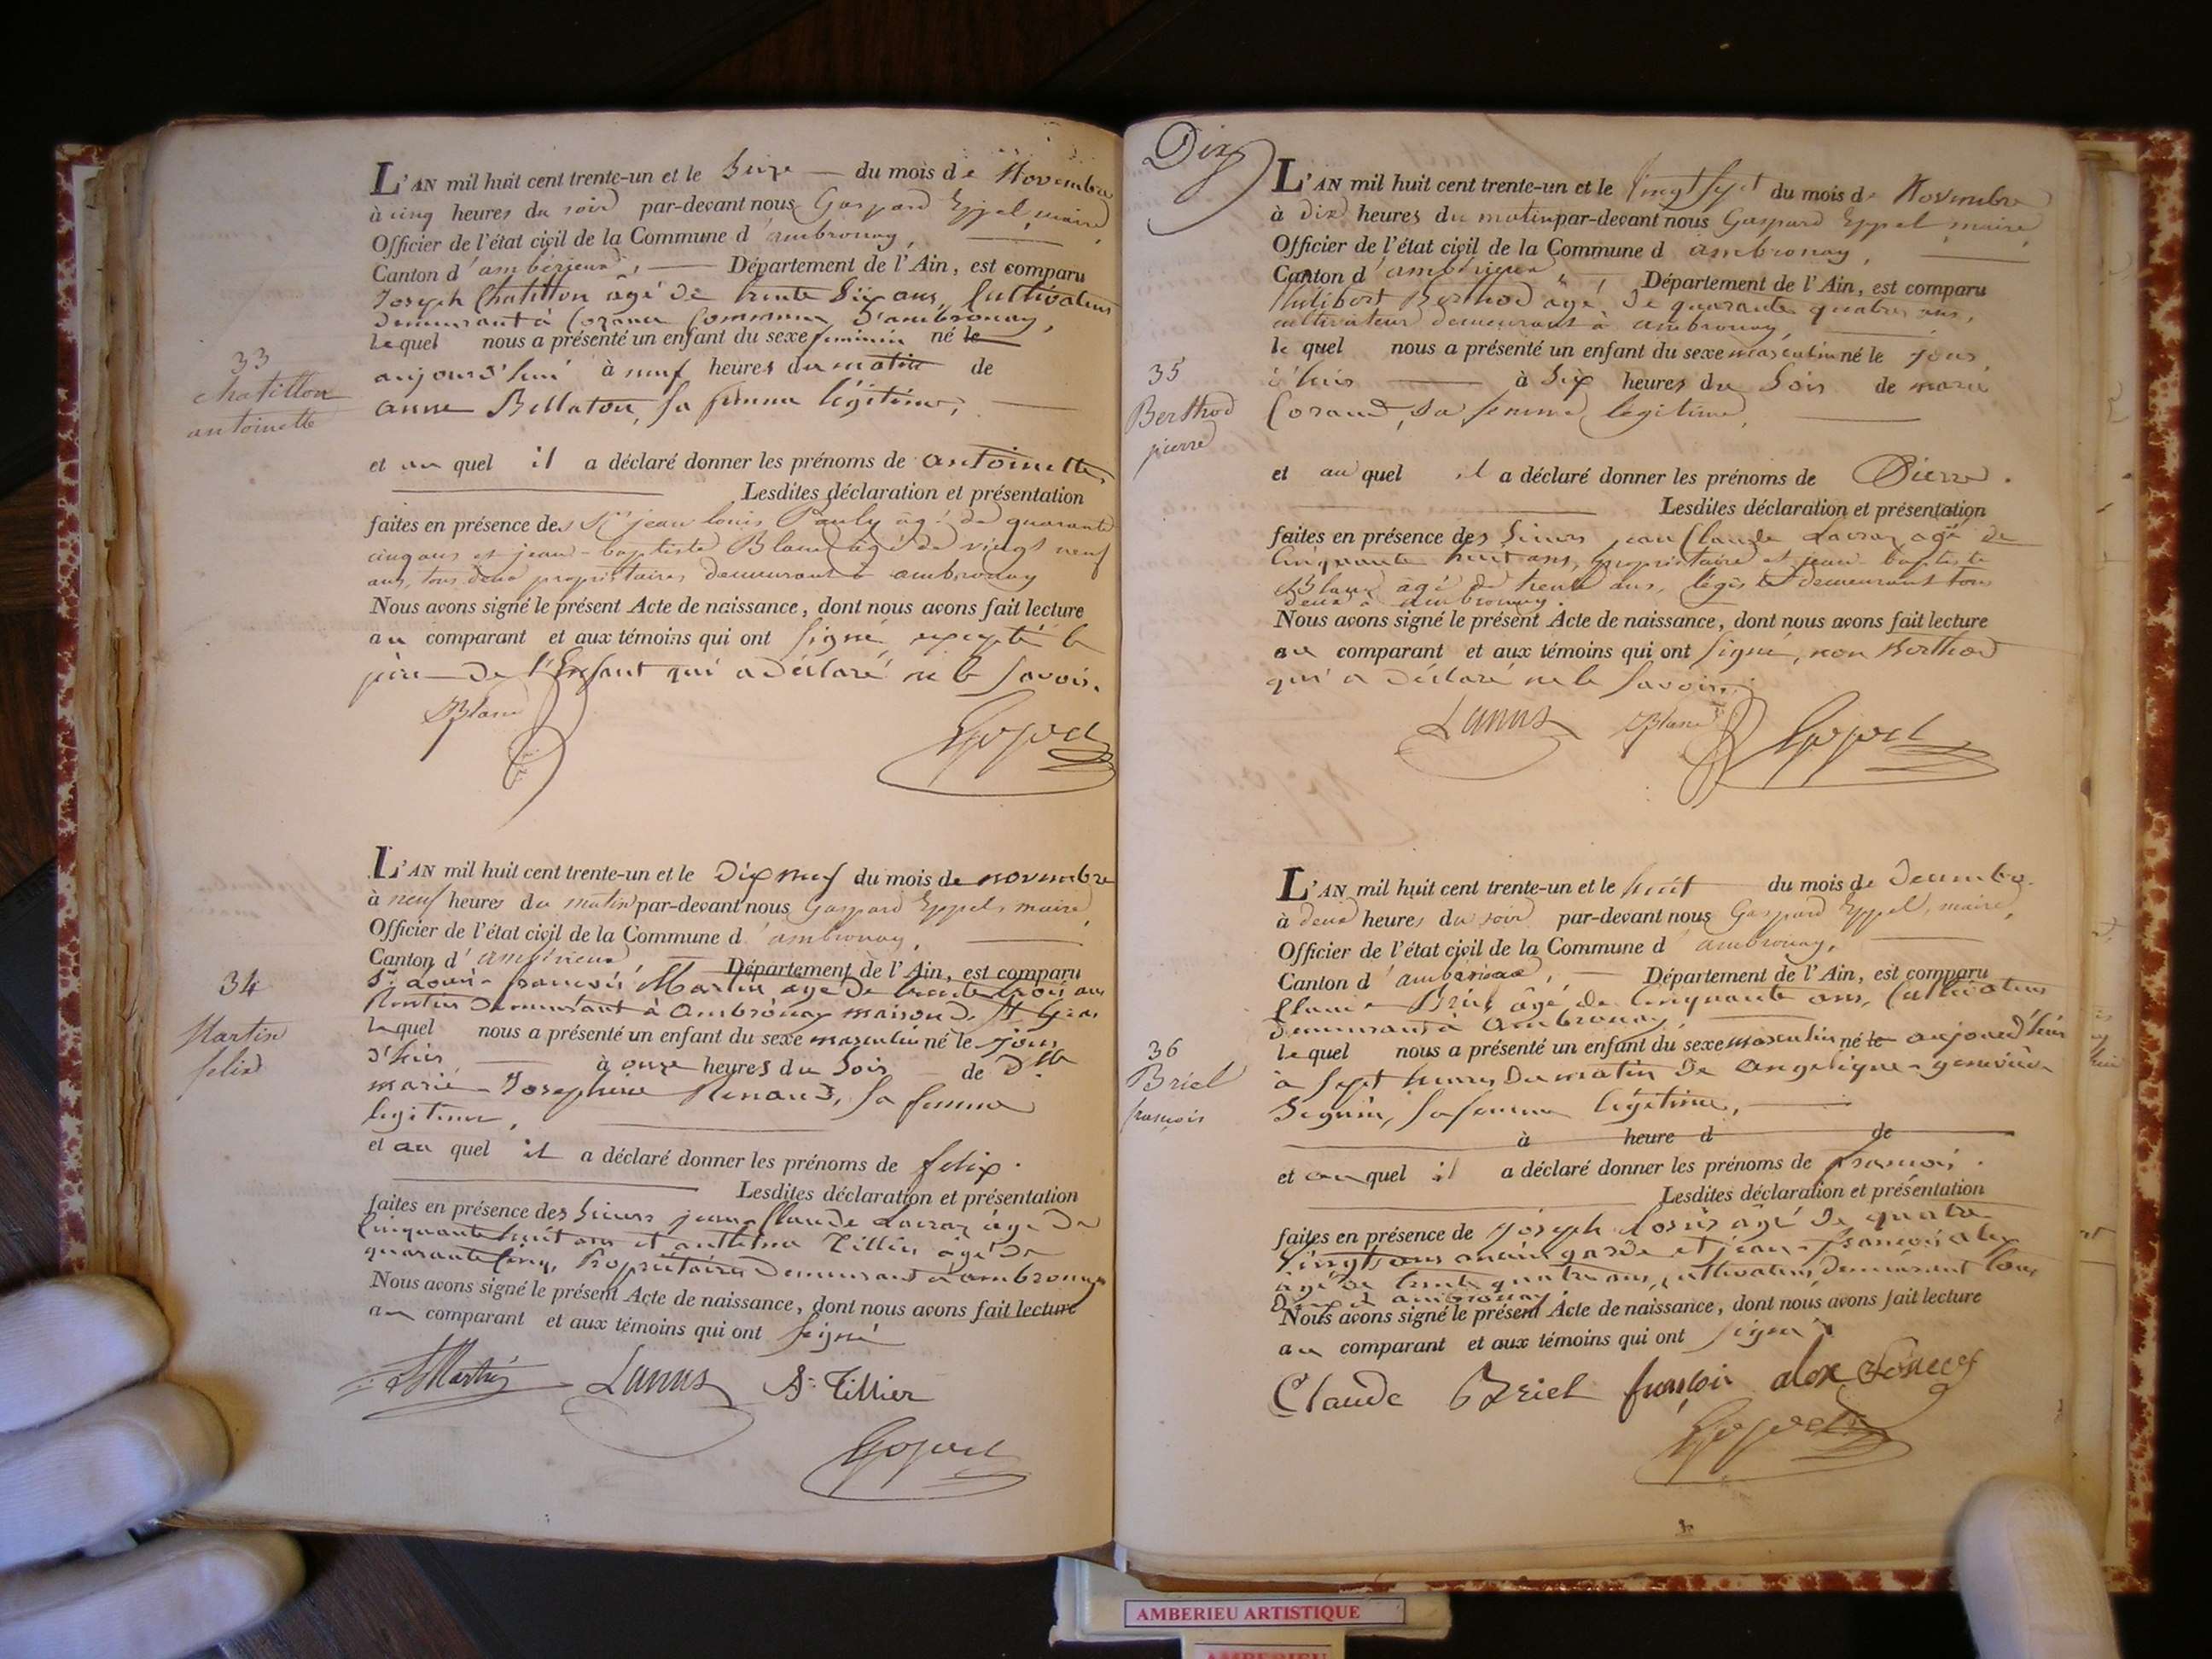 L'AN mil huit cent trente-un et le Seize du mois de Novembre
à cinq heures du soir par-devant nous Gaspard Eppel, maire,
Officier de l'état civil de la Commune d'ambronay,
Canton d'ambérieux, Département de l'Ain, est comparu
Joseph Chatillon âgé de trente Six ans, Cultivateur
demeurant à Coran Commune d'ambronay,
Lequel nous a présenté un enfant du sexe feminin né le
33
aujourd'hui à neuf heures du matin de
chatillon
antoinette
anne Bellaton, Sa femme légitime,
et au quel il a déclaré donner les prénoms de antoinette,
Lesdites déclaration et présentation
faites en présence des Sr jean louis Pauly âgé de quarante
cinq ans et jean-baptiste Blanc âgé de vingt neuf
ans, tous deux propriétaires demeurant à ambronay
Nous avons signé le présent Acte de naissance, dont nous avons fait lecture
au comparant et aux témoins qui ont Signé, excepté le
père de l'Enfant qui a déclaré ne le Savoir.
Blanc Eppel
L'AN mil huit cent trente-un et le Dix neuf du mois de novembre
à neuf heures du matin par-devant nous Gaspard Eppel, maire,
Officier de l'état civil de la Commune d'ambronay,
Canton d'ambérieux Département de l'Ain, est comparu
Sr Louis-françois Martin âgé de trente trois ans
Rentier Demeurant à Ambronay maison de St
Lequel nous a présenté un enfant du sexe masculin né le jour
34
Martin
felix
d'hier à onze heures du Soir de Dlle
marie-Josephine Renaud, Sa femme
legitime,
et au quel il a déclaré donner les prénoms de felix.
Lesdites déclaration et présentation
faites en présence des Sieurs jean-Claude Lacraz âgé de
Cinquante huit ans et anthelme Tillier âgé de
quarante Cinq, Propriétaires Demeurant à ambronay
Nous avons signé le présent Acte de naissance, dont nous avons fait lecture
au comparant et aux témoins qui ont Signé
Martin A. Tillier
Eppel
Dix
L'AN mil huit cent trente-un et le Vingt Sept du mois de Novembre
à dix heures du matin par-devant nous Gaspard Eppel maire,
Officier de l'état civil de la Commune d'ambronay,
Canton d'ambérieux, Département de l'Ain, est comparu
Philibert Berthod âgé de quarante quatre ans,
cultivateur demeurant à ambronay,
le quel nous a présenté un enfant du sexe masculin né le jour
35
Berthod
pierre
d'hier à Six heures du Soir de marie
Coraud, Sa femme légitime,
et au quel il a déclaré donner les prénoms de Pierre.
Lesdites déclaration et présentation
faites en présence des Sieurs jean Claude Lacraz âgé de
Cinquante huit ans, propriétaire et jean-baptiste
Blanc âgé de trente ans, légiste demeurant tous
deux à ambronay.
Nous avons signé le présent Acte de naissance, dont nous avons fait lecture
au comparant et aux témoins qui ont Signé, non Berthod
qui a déclaré ne le Savoir.
Blanc Eppel
L'AN mil huit cent trente-un et le huit du mois de Decembre
à deux heures du soir par-devant nous Gaspard Eppel, maire,
Officier de l'état civil de la Commune d'ambronay,
Canton d'ambérieux, Département de l'Ain, est comparu
Claude Briel âgé de Cinquante ans, Cultivateur
demeurant à Ambronay,
lequel nous a présenté un enfant du sexe masculin né le aujourd'hui
36
Briel
françois
à Sept heures Du matin de Angelique-geneviève
Seguin, Sa femme légitime,
à heure d de
et au quel il a déclaré donner les prénoms de françois.
Lesdites déclaration et présentation
faites en présence de Joseph âgé de quatre
Vingt ans garde et jean-françois alex
âgé de trente quatre ans, cultivateurs demeurant tous
Deux à ambronay.
Nous avons signé le présent Acte de naissance, dont nous avons fait lecture
au comparant et aux témoins qui ont Signé
Claude Briel françois alex
Eppel
AMBERIEU ARTISTIQUE
AMBERIEU